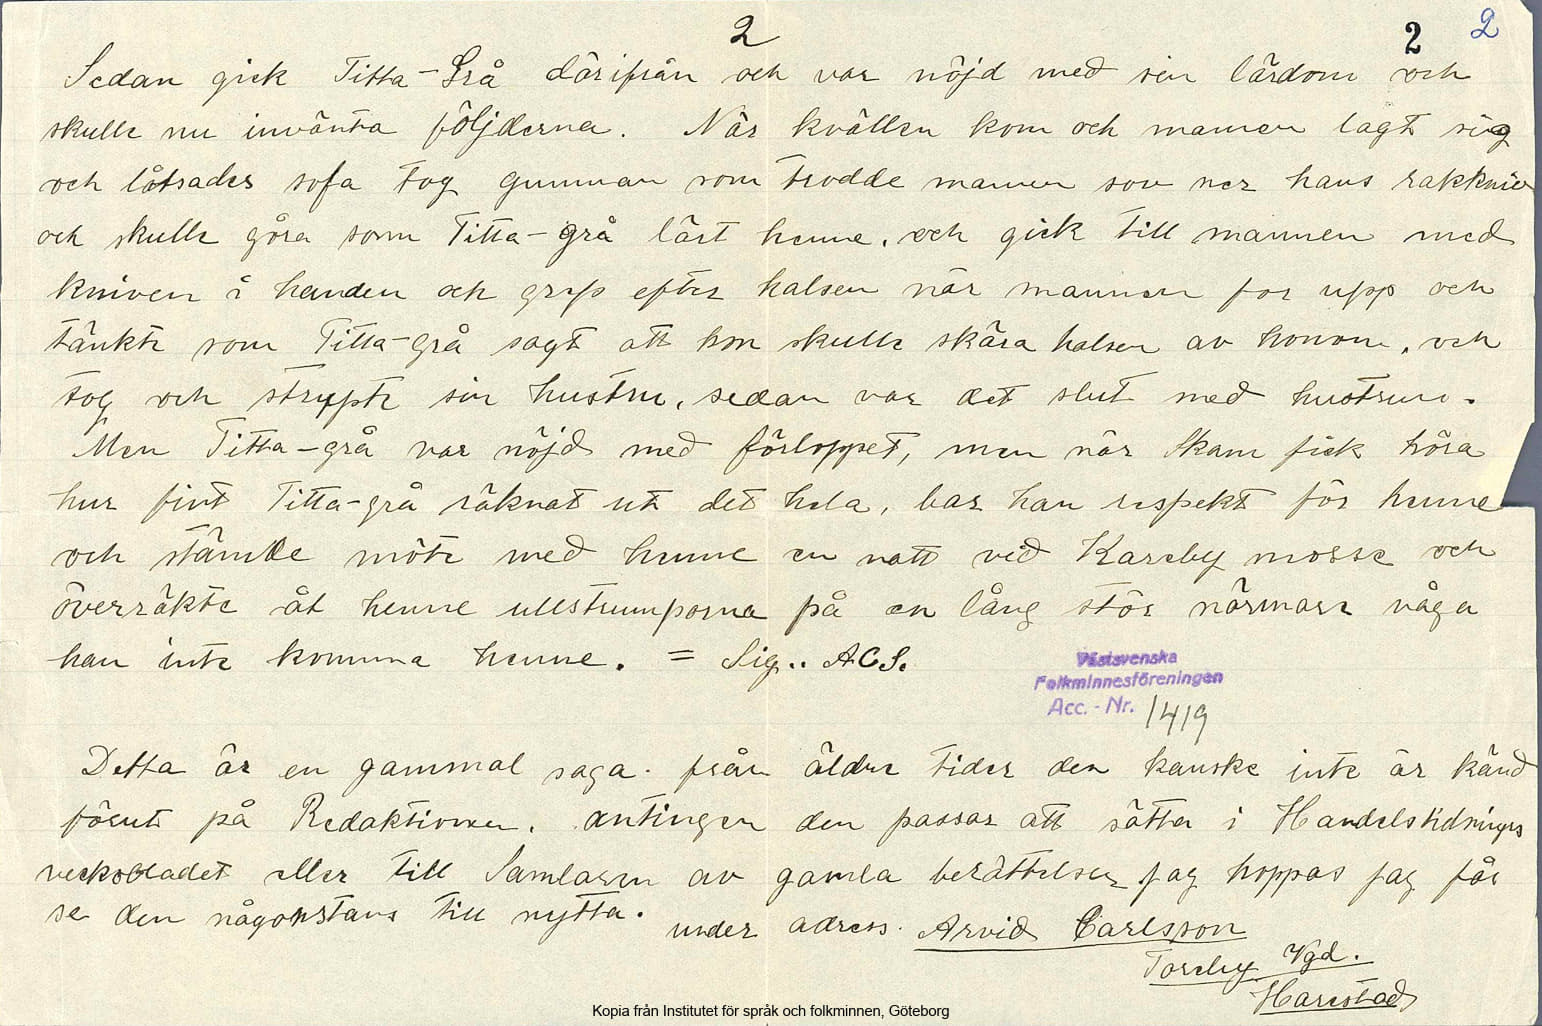 2
2 2
Sedan gick Titta-Grå därifrån och var nöjd med sin lärdom och
skulle nu invänta följderna. När kvällen kom och mannen lagt sig
och låtsades sofa tog gumman som trodde mannen sov ner hans rakkniv
och skulle göra som Titta-grå lärt henne, och gick till mannen med
kniven i handen och grep efter halsen när mannen for upp och
tänkte som Titta-grå sagt att hon skulle skära halsen av honom, och
tog och strypte sin hustru, sedan var det slut med hustrun.
Men Titta-grå var nöjd med förloppet, men när Skam fick höra
hur fint Titta-grå räknat ut det hela, bar han respekt för henne
och stämde möte med henne en natt vid Kareby mosse och
överräkte åt henne ullstrumporna på en lång stör närmare våga
han inte komma henne. = Sig.. ACS.
Västsvenska
Folkminnesföreningen
Acc. - Nr. 1419
Detta är en gammal saga. från äldre tider den kanske inte är känd
förut på Redaktionen. antingen den passar att sätta i Handelstidnings
veckobladet eller till Samlaren av gamla berättelser, jag hoppas jag får
se den någonstans till nytta. under adress. Arvid Carlsson
Torsby Vgd.
Harestad
Kopia från Institutet för språk och folkminnen, Göteborg